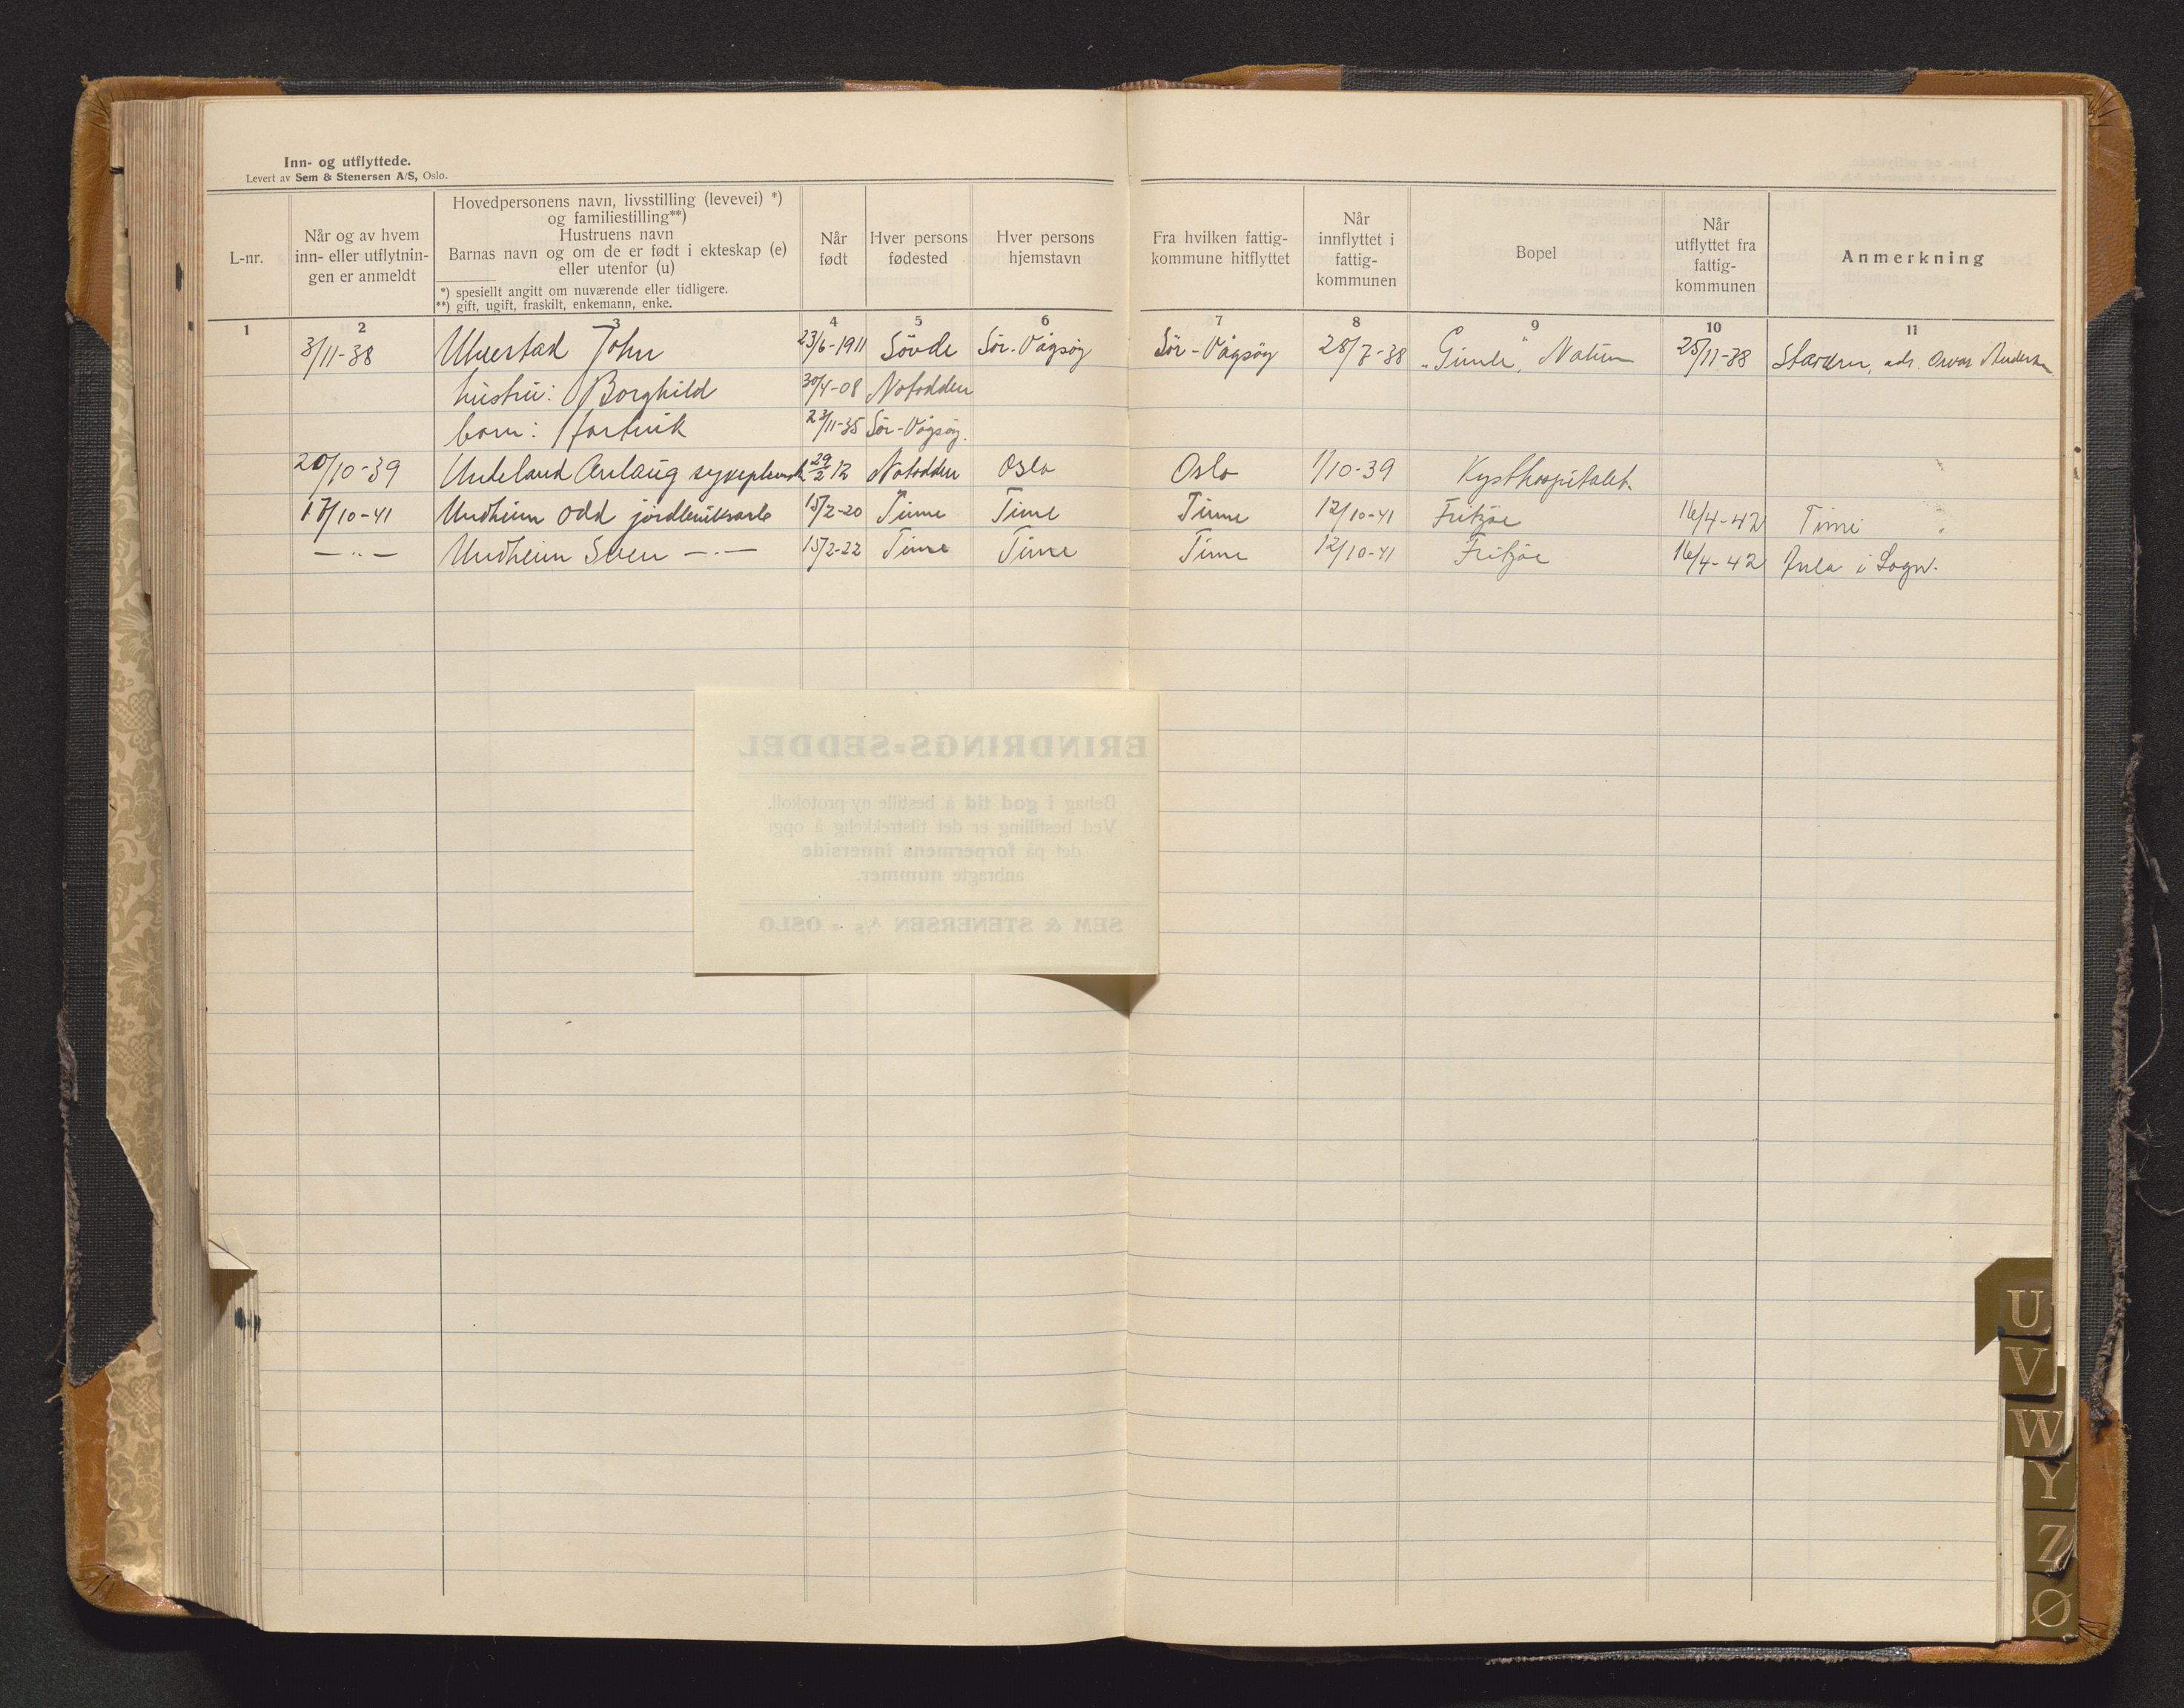 Inn- og utflyttede.
Levert av Sem & Stenersen A/S, Oslo.
L-nr.
Når og av hvem
inn- eller utflytnin-
gen er anmeldt
Hovedpersonens navn, livsstilling (levevei) *)
og familiestilling**)
Hustruens navn
Barnas navn og om de er født i ekteskap (e)
eller utenfor (u)
*) spesiellt angitt om nuværende eller tidligere.
**) gift, ugift, fraskilt, enkemann, enke.
Når
født
Hver persons
fødested
Hver persons
hjemstavn
Fra hvilken fattig-
kommune hitflyttet
Når
innflyttet i
fattig-
kommunen
Bopel
Når
utflyttet fra
fattig-
kommunen
Anmerkning
1 2 3 4 5 6 7 8 9 10 11
3/11-38 Ulvestad John 23/6-1911 Sövde Sör-Vågsöy Sör-Vågsöy 28/7-38 "Gimle", Nalum 25/11-38 Stavern, adr.
hustru: Borghild 30/4-08 Notodden
barn: 23/11-35 Sör-Vågsöy.
20/10-39 Undeland Anlaug sykepleiersk 29/2 12 Notodden Oslo Oslo 1/10-39 Kysthospitalet.
17/10-41 Undheim Odd jordbruksarb 15/2-20 Time Time Time 12/10-41 Fritzöe 16/4-42 Time
—"— Undheim Sven —"— 15/2-22 Time Time Time 12/10-41 Fritzöe 16/4-42 i Sogn.
ERINDRINGS-SEDDEL
Behag i god tid å bestille ny protokoll.
Ved bestilling er det tilstrekkelig å opgi
det på forpermens innerside
anbragte nummer.
SEM & STENERSEN A/S - OSLO
U
V
W
Y
Z
Ø